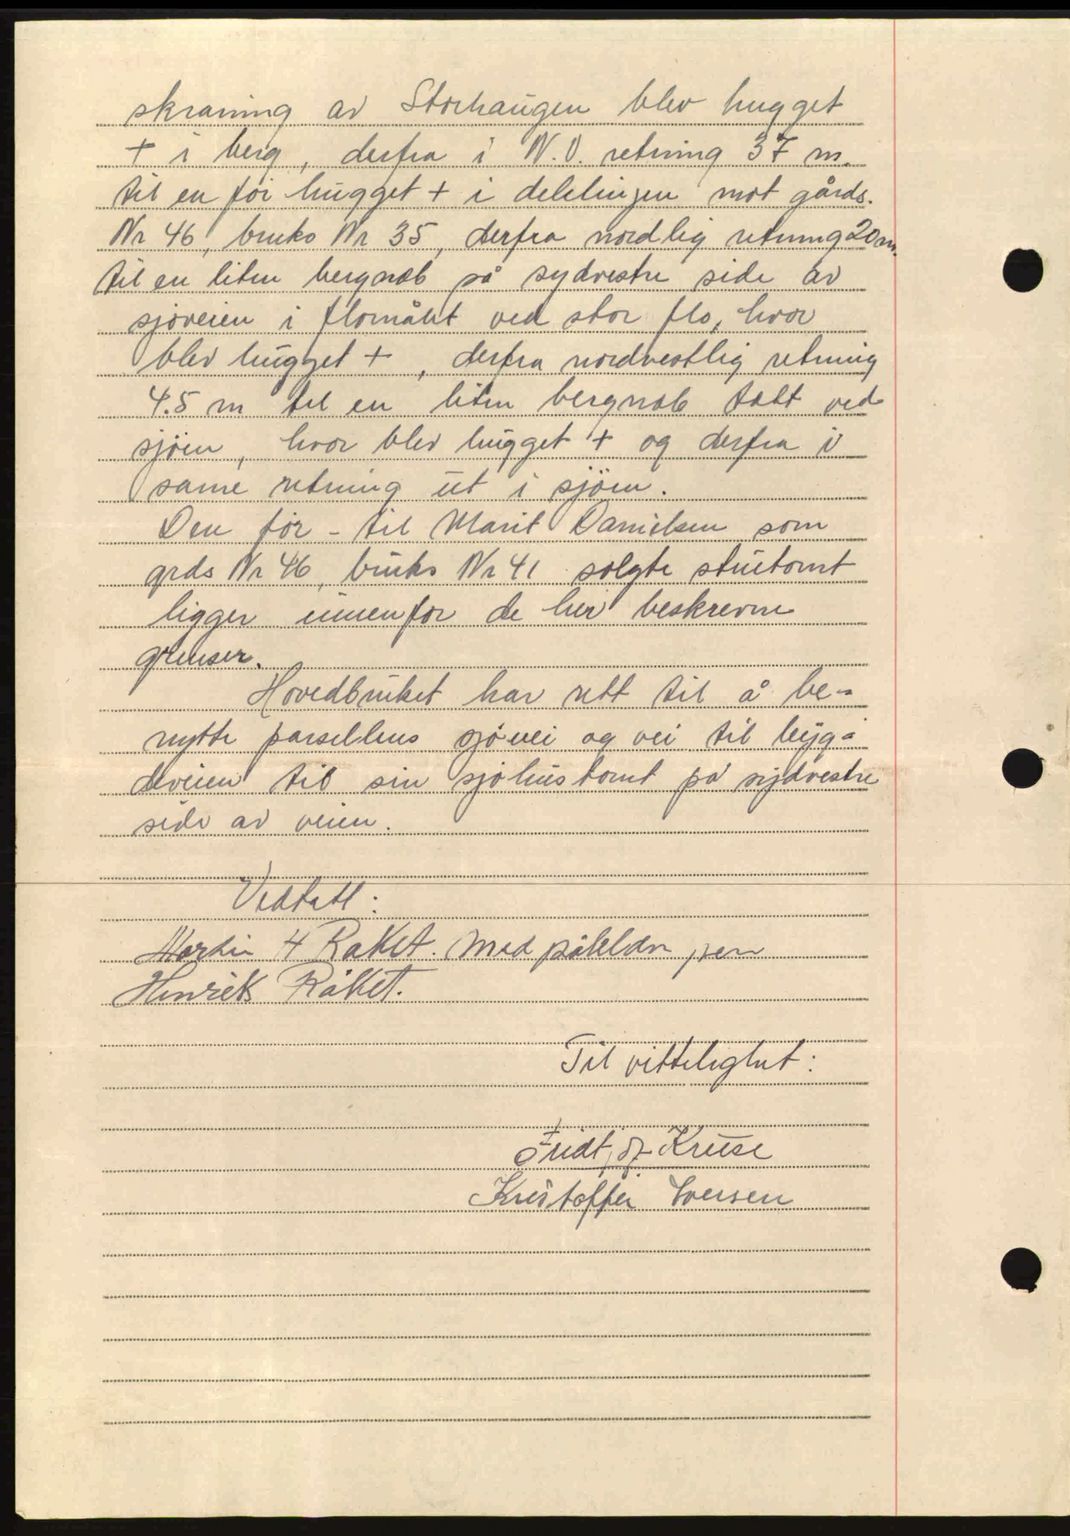 skraning av Storhaugen blev hugget
+ i berg, derfra i N.O. retning 37 m.
til en før hugget + i delelinjen mot gårds.
Nr 46, bruks Nr 35, derfra nordlig retning 20 m.
til en liten bergnab på sydvestre side av
sjøveien i flomålet ved stor flo, hvor
blev hugget +, derfra nordvestlig retning
4.5 m til en liten bergnab tett ved
sjöen, hvor blev hugget + og derfra i
same retning ut i sjöen.
Den før - til Marit Danielsen som
grds Nr 46, bruks Nr 41 solgte stuetomt
ligger innenfor de her beskrevne
grenser.
Hovedbruket har rett til å be-
nytte parsellens sjövei og vei til byg-
deveien til sin sjøhustomt på sydvestre
side av veien.
Vedtatt:
Martin H Raket. Med påholden pen
Henrik Råket.
Til vitterlighet:
Fridtjof Kruse
Kristoffer Iversen